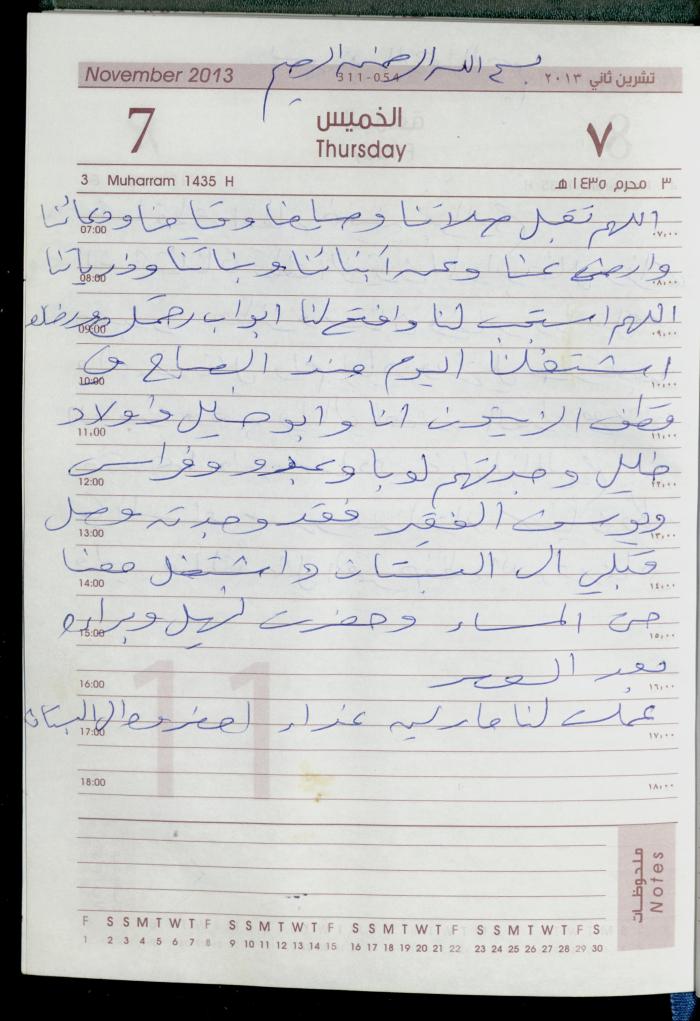 بسم الله الرحمن الرحيم
November 2013 311-054 تشرين ثاني ٢٠١٣
7 الخميس ٧
Thursday
3 Muharram 1435 H ٣ محرم ١٤٣٥ هـ
اللهم تقبل صلاتنا وصيامنا وقيامنا ودعائنا
07:00 ٠٧,٠٠
وارضى عنا وعن أبنائنا وبناتنا وذرياتنا
08:00 ٠٨,٠٠
اللهم استجب لنا وافتح لنا ابواب رحمتك
09:00 ٠٩,٠٠
اشتغلنا اليوم منذ الصباح في
10:00 ١٠,٠٠
قطف الزيتون انا وابو خليل واولاد
11:00 ١١,٠٠
خليل وجدتهم لوبا وعبدو وفراس
12:00 ١٢,٠٠
ويوسف الفقير فقد وجدته وصل
13:00 ١٣,٠٠
قبلي الى البستان واشتغل معنا
14:00 ١٤,٠٠
حتى المساء وحضرت نهيل وبراءه
15:00 ١٥,٠٠
بعد العصر
16:00 ١٦,٠٠
عملت لنا ماريه غداء البستان
17:00 ١٧,٠٠
18:00 ١٨,٠٠
11
ملحوظات
Notes
F S S M T W T F S S M T W T F S S M T W T F S S M T W T F S
1 2 3 4 5 6 7 8 9 10 11 12 13 14 15 16 17 18 19 20 21 22 23 24 25 26 27 28 29 30